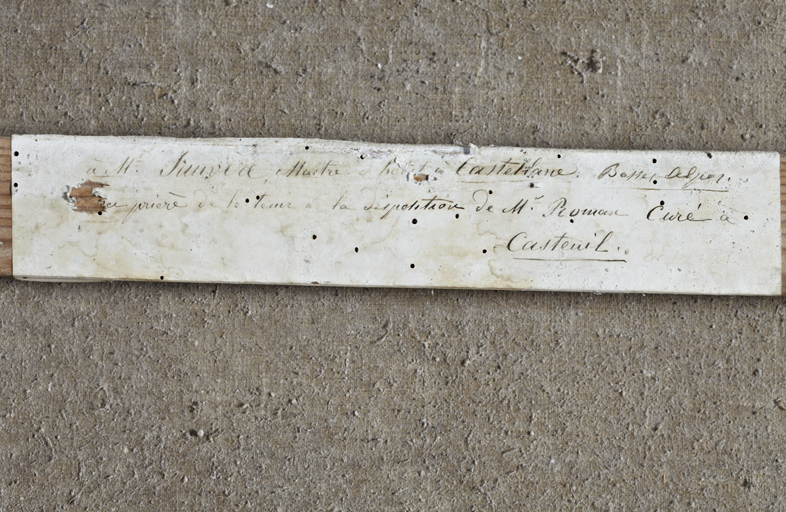 à Mr. Maitre d'hotel à Castellane. Basses Alpes.
prière de le tenir à la disposition de Mr. Roman Curé à
Casteuil.